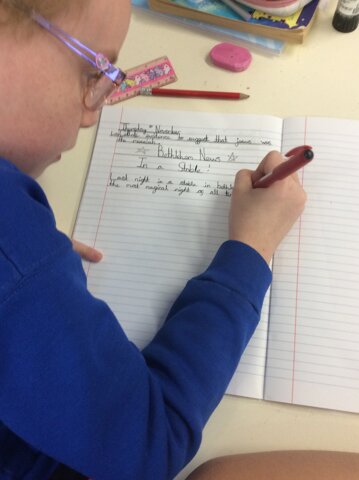 Thursday November
Can find evidence to suggest that jesus was
the messiah
☆ Bethlehem News ☆
In a Stable!
Last night in a stable in
the most magical night of all